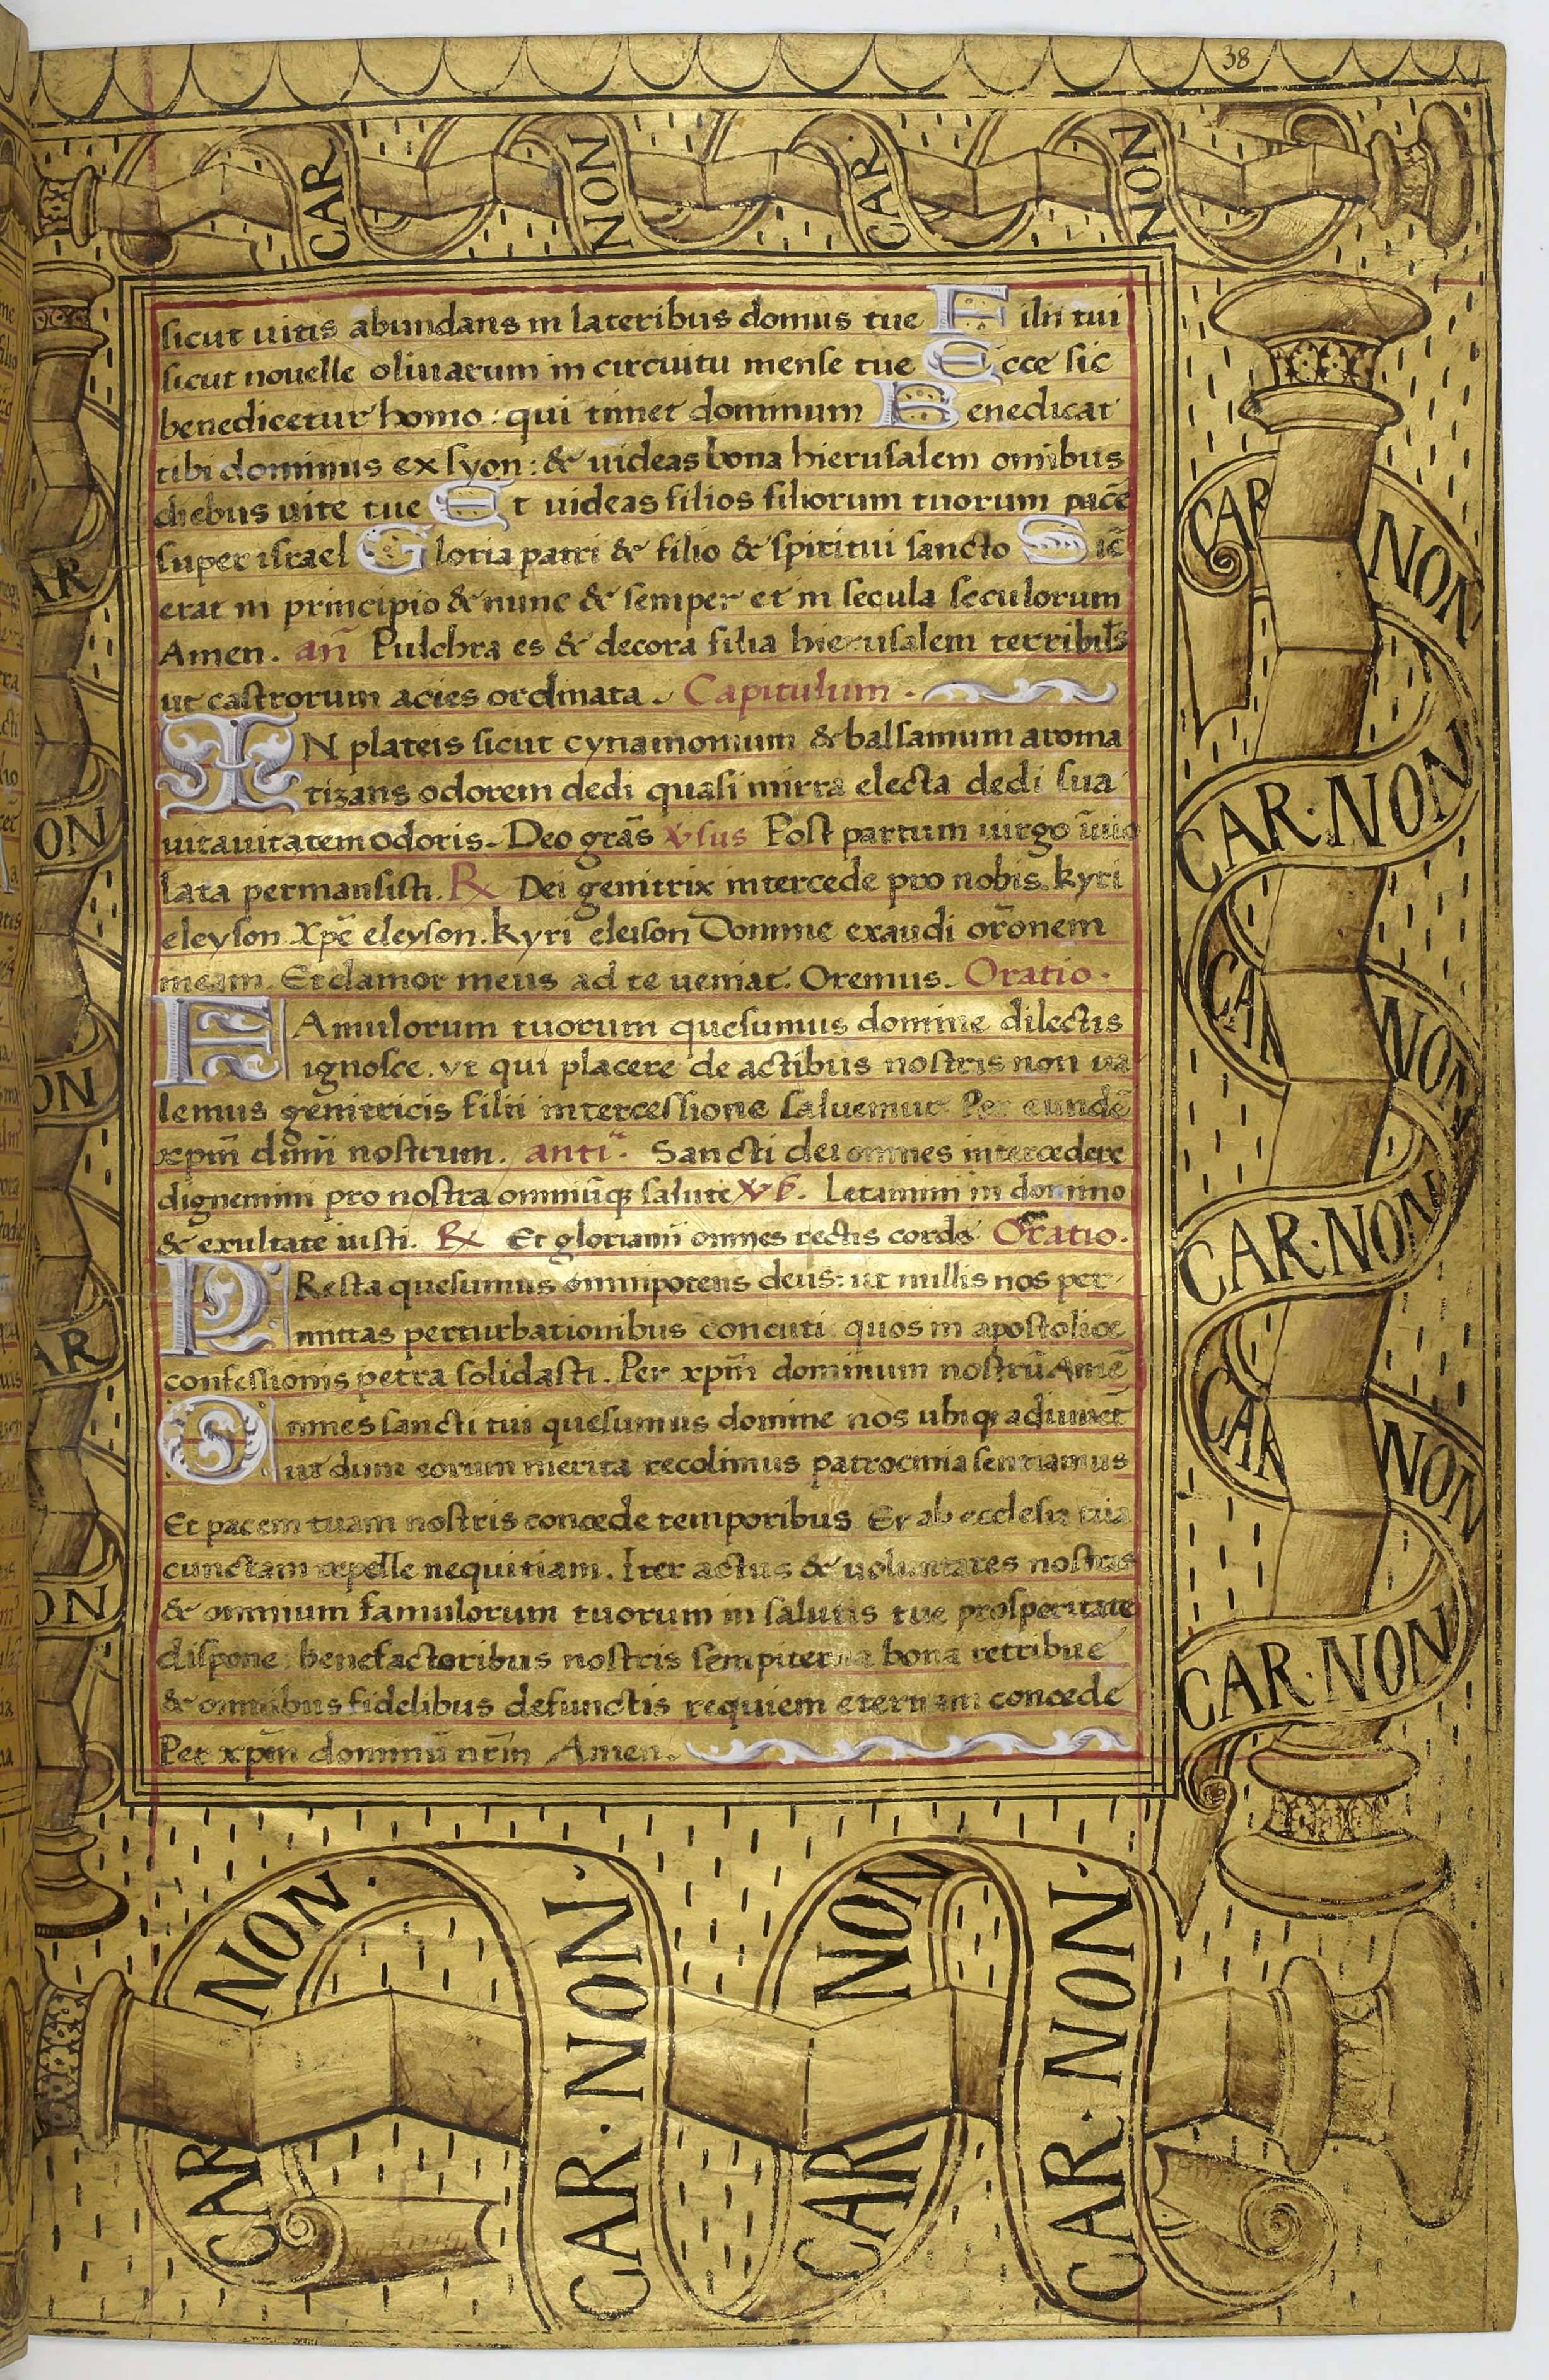 38
CAR·
NON
CAR·
NON
sicut uitis abundans in lateribus domus tue Filii tui
sicut nouelle oliuarum in circuitu mense tue Ecce sic
benedicetur homo: qui timet dominum Benedicat
tibi dominus ex syon: & uideas bona hierusalem omnibus
diebus uite tue Et uideas filios filiorum tuorum pacē
super israel Gloria patri & filio & spiritui sancto Sic̄
erat in principio & nunc & semper et in secula seculorum
Amen. añ Pulchra es & decora filia hierusalem terribil̄s
ut castrorum acies ordinata. Capitulum.
IN plateis sicut cynamomum & balsamum aroma
tizans odorem dedi quasi mirra electa dedi sua
uitauitatem odoris. Deo grās v̄sus Post partum uirgo īuio
lata permansisti. ℞ Dei genitrix intercede pro nobis. kyri
eleyson. Xpē eleyson. kyri eleison Domine exaudi orōnem
meam. Et clamor meus ad te ueniat. Oremus. Oratio.
FAmulorum tuorum quesumus domine dilectis
ignosce. vt qui placere de actibus nostris non ua
lemus genitricis filii intercessione saluemur Per eundē
xpm̄ dnm̄ nostrum. anti.ᵃ Sancti dei omnes intercedere
dignemini pro nostra omniūq; salute ℣. Letamini in domino
& exultate iusti. ℞ Et gloriamī omnes recti corde Oratio.
PResta quesumus omnipotens deus: ut nullis nos per
mittas perturbationibus concuti quos in apostolice
confessionis petra solidasti. Per xpm̄ dominum nostrū Amē
Omnes sancti tui quesumus domine nos ubiq; adiuuet
ut dum eorum merita recolimus patrocinia sentiamus
Et pacem tuam nostris concede temporibus Et ab ecclesia tua
cunctam repelle nequitiam. Iter actus & uoluntates nostras
& omnium famulorum tuorum in salutis tue prosperitate
dispone: benefactoribus nostris sempiterna bona retribue
& omnibus fidelibus defunctis requiem eternam concede
Per xpm̄ dominū nr̄m Amen.
CAR NON
CAR·NON
CAR NON
CAR·NON
CAR NON
CAR·NON
AR
ON
ON
AR
ON
CAR NON·
CAR·NON·
CAR NON
CAR·NON·